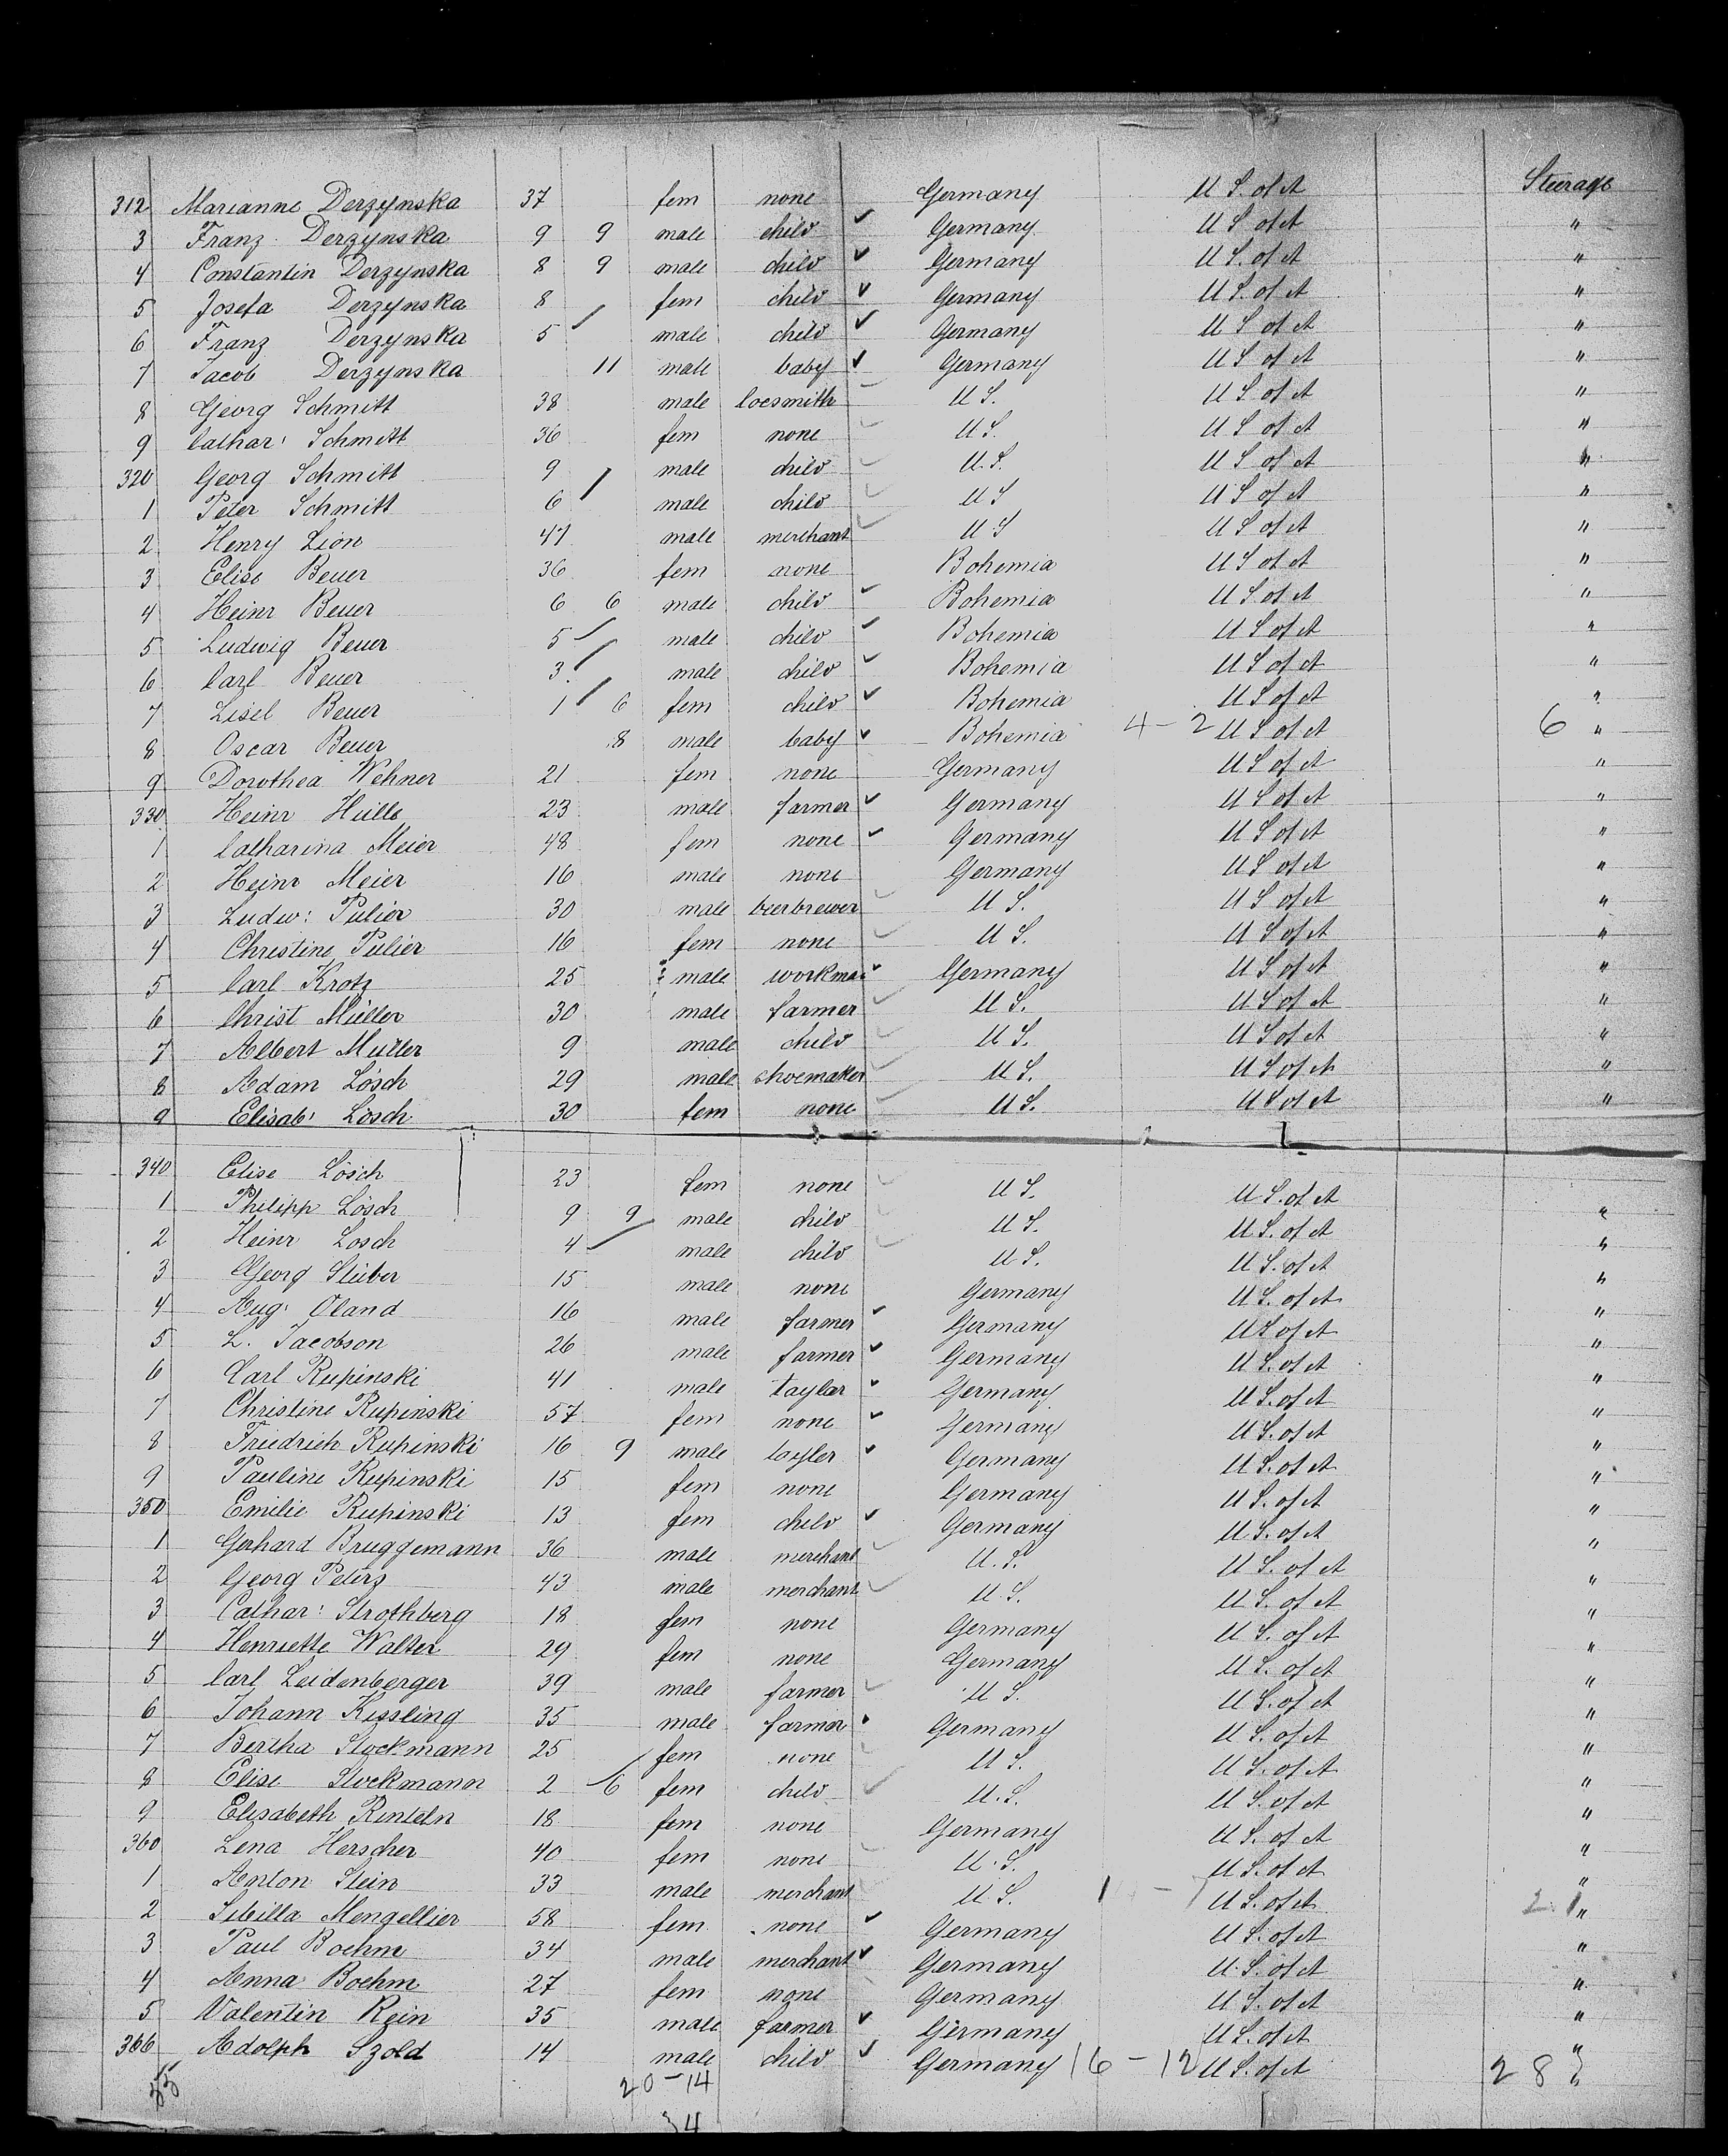 312 Marianne Derzynska 37 fem none Germany U S. of A Steerage
3 Franz Derzynska 9 9 male child ✓ Germany U S of A "
4 Constantin Derzynska 8 9 male child ✓ Germany U S. of A "
5 Josefa Derzynska 8 fem child ✓ Germany U S. of A "
6 Franz Derzynska 5 male child ✓ Germany U S of A "
7 Jacob Derzynska 11 male baby ✓ Germany U S of A "
8 Georg Schmitt 38 male locsmith U S. U S of A "
9 Cathar: Schmitt 36 fem none U S. U S of A "
320 Georg Schmitt 9 male child U. S. U S of A "
1 Peter Schmitt 6 male child U S U S of A "
2 Henry Lion 47 male merchant U S U S of A "
3 Elise Beuer 36 fem none Bohemia U S of A "
4 Heinr Beuer 6 6 male child ✓ Bohemia U S of A "
5 Ludwig Beuer 5 male child ✓ Bohemia U S of A "
6 Carl Beuer 3 male child ✓ Bohemia U S of A "
7 Lisel Beuer 1 6 fem child ✓ Bohemia U S of A "
8 Oscar Beuer 8 male baby ✓ Bohemia 4-2 U S of A 6 "
9 Dorothea Wehner 21 fem none Germany U S of A "
330 Heinr Hulls 23 male farmer ✓ Germany U S of A "
1 Catharina Meier 48 fem none ✓ Germany U S of A "
2 Heinr Meier 16 male none Germany U S of A "
3 Ludw: Pulier 30 male beerbrewer U S. U S of A "
4 Christine Pulier 16 fem none U S. U S of A "
5 Carl Krotz 25 male workman ✓ Germany U S of A "
6 Christ Müller 30 male farmer U S. U S of A "
7 Albert Müller 9 male child U S. U S of A "
8 Adam Lösch 29 male shoemaker U S. U S of A "
9 Elisab: Lösch 30 fem none U S. U S of A "
340 Elise Lösch 23 fem none U S. U S. of A
1 Philipp Lösch 9 9 male child U S. U S. of A "
2 Heinr Lösch 4 male child U S. U S. of A "
3 Georg Stüber 15 male none Germany U S. of A "
4 Aug: Oland 16 male farmer ✓ Germany U S of A "
5 L. Jacobson 26 male farmer ✓ Germany U S. of A "
6 Carl Rupinski 41 male taylar ✓ Germany U S. of A "
7 Christine Rupinski 57 fem none ✓ Germany U S. of A "
8 Friedrich Rupinski 16 9 male tayler ✓ Germany U S. of A "
9 Pauline Rupinski 15 fem none Germany U S. of A "
350 Emilie Rupinski 13 fem child ✓ Germany U S. of A "
1 Gerhard Bruggemann 36 male merchant U. S. U S. of A "
2 Georg Peters 43 male merchant U S. U S. of A "
3 Cathar: Strothberg 18 fem none Germany U S. of A "
4 Henriette Walter 29 fem none Germany U S. of A "
5 Carl Leidenberger 39 male farmer U S. U S. of A "
6 Johann Kissling 35 male farmer Germany U S. of A "
7 Bertha Stockmann 25 fem none U S. U S. of A "
8 Elise Stockmann 2 6 fem child U. S. U S. of A "
9 Elisabeth Rinteln 18 fem none Germany U S. of A "
360 Lena Herscher 40 fem none U. S. U S. of A "
1 Anton Stein 33 male merchant U S. 1 - U S. of A 21 "
2 Sibilla Mengellier 58 fem none ✓ Germany U S. of A "
3 Paul Boehm 34 male merchant ✓ Germany U. S. of A "
4 Anna Boehm 27 fem none Germany U S. of A "
5 Valentin Rein 35 male farmer ✓ Germany U S. of A "
366 Adolph Szold 14 male child ✓ Germany 16-12 U S. of A 28 "
55 20-14
34